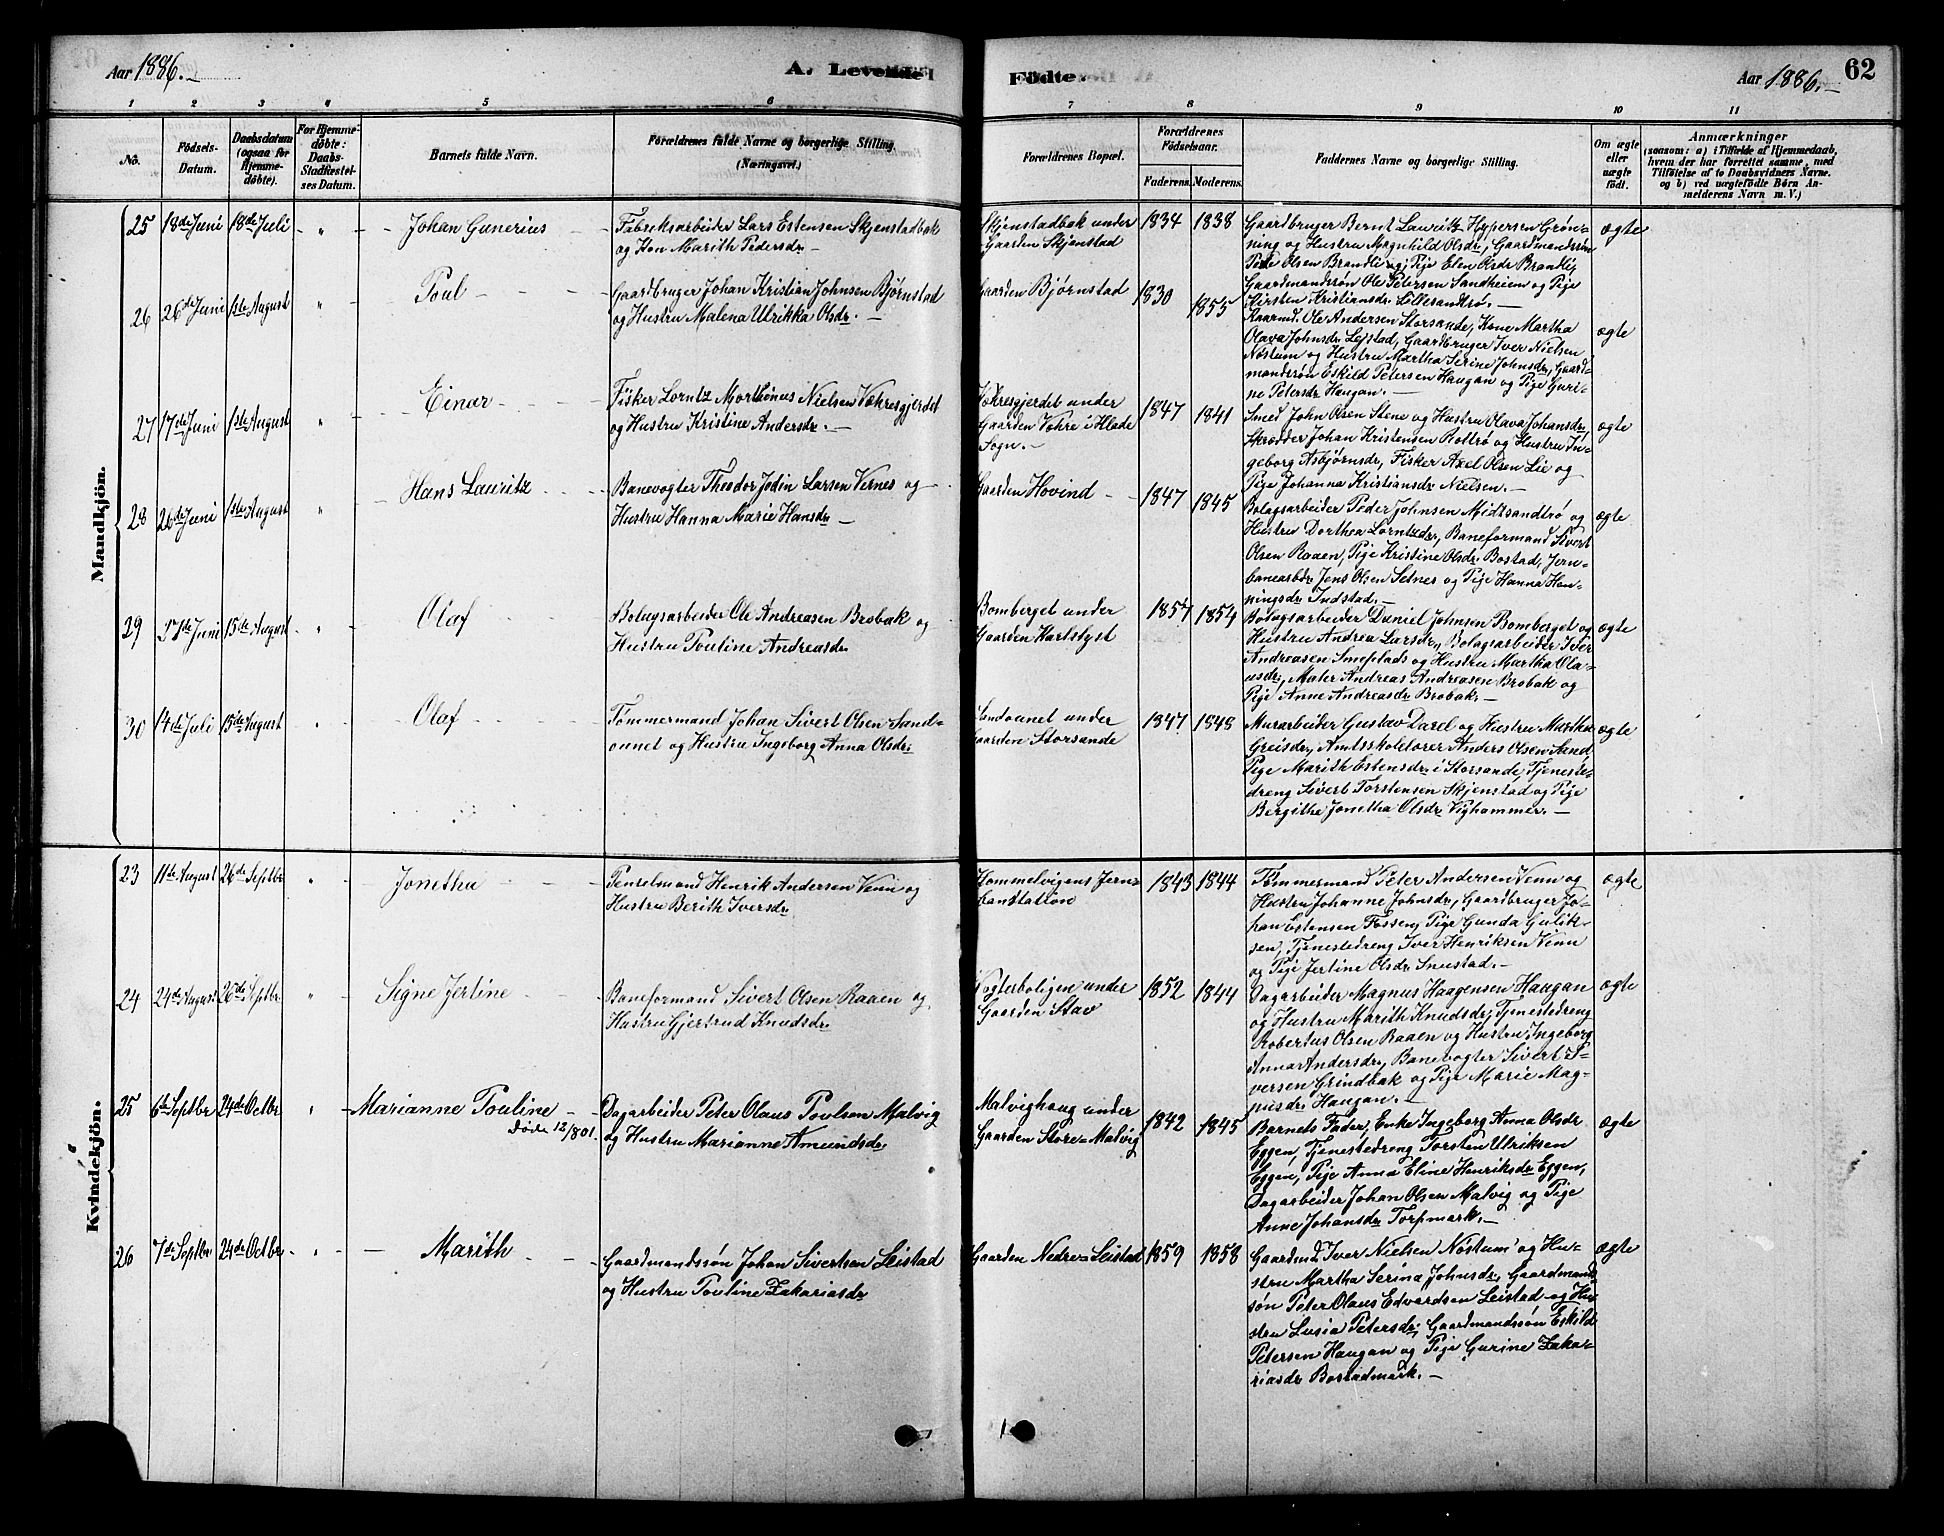 Aar 1886.
A. Levende
Födte.
Aar 1886.
62
1 2 3 4 5 6 7 8 9 10 11
No.
Födsels-
Datum.
Daabsdatum
(ogsaa for
Hjemme-
döbte).
For Hjemme-
döbte:
Daabs-
Stadfæstel-
ses Datum.
Barnets fulde Navn.
Forældrenes fulde Navne og borgerlige Stilling.
(Næringsvei.)
Forældrenes Bopæl.
Forældrenes
Födselsaar.
Faderens. Moderens.
Faddernes Navne og borgerlige Stilling.
Om ægte
eller
uægte
födt.
Anmærkninger
(saasom: a) i Tilfælde af Hjemmedaab,
hvem der har forrettet samme, med
Tilföielse af to Daabsvidners Navne.
og b) ved uægtefödte Börn An-
melderens Navn m. V.)
Mandkjön.
25 18de Juni 18de Juli " Johan Gunerius
Fabriksarbeider Lars Estensen Skjenstadbak
og Kon Marith Pedersdr.
Skjenstadbak under
Gaarden Skjenstad
1834 1838
Gaardbruger Bernt Lauritz Hypersen Grøn-
ning og Hustru Magnhild Olsdr, Gaardmandsøn
Peder Olsen Brandli og Pige Elen Olsdr Brandli,
Gaardmandsøn Ole Petersen Sandheien og Pige
Kirsten Kristiansdr. Lillesandtrø.
ægte
26 26de Juni 1ste August " Poul
Gaardbruger Johan Kristian Johnsen Bjørnstad
og Hustru Malena Ulrikka Olsdr.
Gaarden Bjørnstad
1830 1855
Gaarmd. Ole Andersen Storsande, Kone Martha
Olava Johnsdr Leistad, Gaardbruger Iver Nielsen
Nostum og Hustru Martha Serine Johnsdr, Gaard-
mandsøn Eskild Petersen Haugan og Pige Guri-
ne Petersdr Haugan.
ægte
27 17de Juni 1ste August " Einar
Fisker Lorntz Morthinus Nielsen Vækresgjerdet
og Hustru Kristine Andersdr.
Vækresgjerdet under
Gaarden Vohre i Hlade
Sogn.
1847 1841
Smed John Olsen Stene og Hustru Olava Johansdr
Skrædder Johan Kristensen Rottrø og Hustru In-
geborg Asbjørnsdr, Fisker Axel Olsen Lie og
Pige Johanna Kristiansdr Nielsen.
ægte
28 26de Juni 1ste August " Hans Lauritz
Banevogter Theodor Jodin Larsen Vernes og
Hustru Hanna Marie Hansdr
Gaarden Hovind
1847 1845
Bolagsarbeider Peder Johnsen Midtsandtrø og
Hustru Dorthea Lorntzdr, Baneformand Sivert
Olsen Raaen, Pige Kristine Olsdr. Bostad, Jern-
banearbdr Jens Olsen Selnes og Pige Hanna Hen-
ningsdr Indstad.
ægte
29 17de Juni 15de August " Olaf
Bolugsarbeider Ole Andreasen Brobak og
Hustru Pouline Andreasdr
Bomberget under
Gaarden Karlslyst
1857 1854
Bolugsarbeider Daniel Johnsen Bomberget og
Hustru Andrea Larsdr, Bolagsarbeider Iver
Andreasen Smeplads og Hustru Martha Ola-
usdr, Maler Andreas Andreasen Brobak og
Pige Anne Andreasdr Brobak.
ægte
30 14de Juli 15de August Olaf
Tømmermand Johan Sivert Olsen Sand-
ounet og Hustru Ingeborg Anna Olsdr
Sandounet under
Gaarden Storsande
1847 1848
Murarbeider Gustav Darel og Hustru Martha
Greisdr, Amtsskolelærer Anders Olsen Sand
Pige Marith Estensdr i Storsande, Tjeneste-
dreng Sivert Torstensen Skjenstad og Pige
Bergithe Jonetha Olsdr Vighammer.
ægte
Kvindekjön.
23 11de August 26de Septbr " Jonetha
Penselmand Henrik Andersen Venn og
Hustru Berith Iversdr
Hommelvigens Jern-
banstation
1843 1844
Tømmermand Peter Andersen Venn og
Hustru Johanne Johnsdr, Gaardbruger Jo-
han Estensen Fossen, Pige Gunda Gulik-
sen, Tjenestedreng Iver Henriksen Venn
og Pige Jertine Olsdr Snustad.
ægte
24 24de August 26de Septbr " Signe Jertine
Baneformand Sivert Olsen Raaen og
Hustru Gjertrud Knudsdr
Vogterboligen under
Gaarden Stav
1852 1844
Dagarbeider Magnus Haagensen Haugan
og Hustru Marith Knudsdr, Tjenestedreng
Robertus Olsen Raaen og Hustru Ingeborg
Anna Andersdr, Banevogter Sivert I-
versen Grindbak og Pige Marie Mag-
nusdr Haugan.
ægte
25 6te Septbr 24de Octbr " Marianne Pouline
Døde 12/8 01.
Dagarbeider Peter Olaus Poulsen Malvig
og Hustru Marianne Amundsdr
Malvighaug under
Gaarden Store-Malvig
1842 1845
Barnets Fader, Enke Ingeborg Anna Olsdr
Eggen, Tjenestedreng Torsten Ulriksen
Eggen, Pige Anna Eline Henriksdr Eggen,
Dagarbeider Johan Olsen Malvig og Pige
Anne Johansdr Torpmark.
ægte
26 7de Septbr 24de Octbr " Marith
Gaardmandssøn Johan Sivertsen Leistad
og Hustru Pouline Zakariasdr
Gaarden Nedre-Leistad
1859 1858
Gaardmd Iver Nielsen Nostum og Hu-
stru Martha Serina Johnsdr, Gaardmand-
søn Peter Olaus Edvardsen Leistad og Hu-
stru Lusia Petersdr, Gaardmandssøn Eskild
Petersen Haugan og Pige Gurine Zaka-
riasdr Bostadmark.
ægte